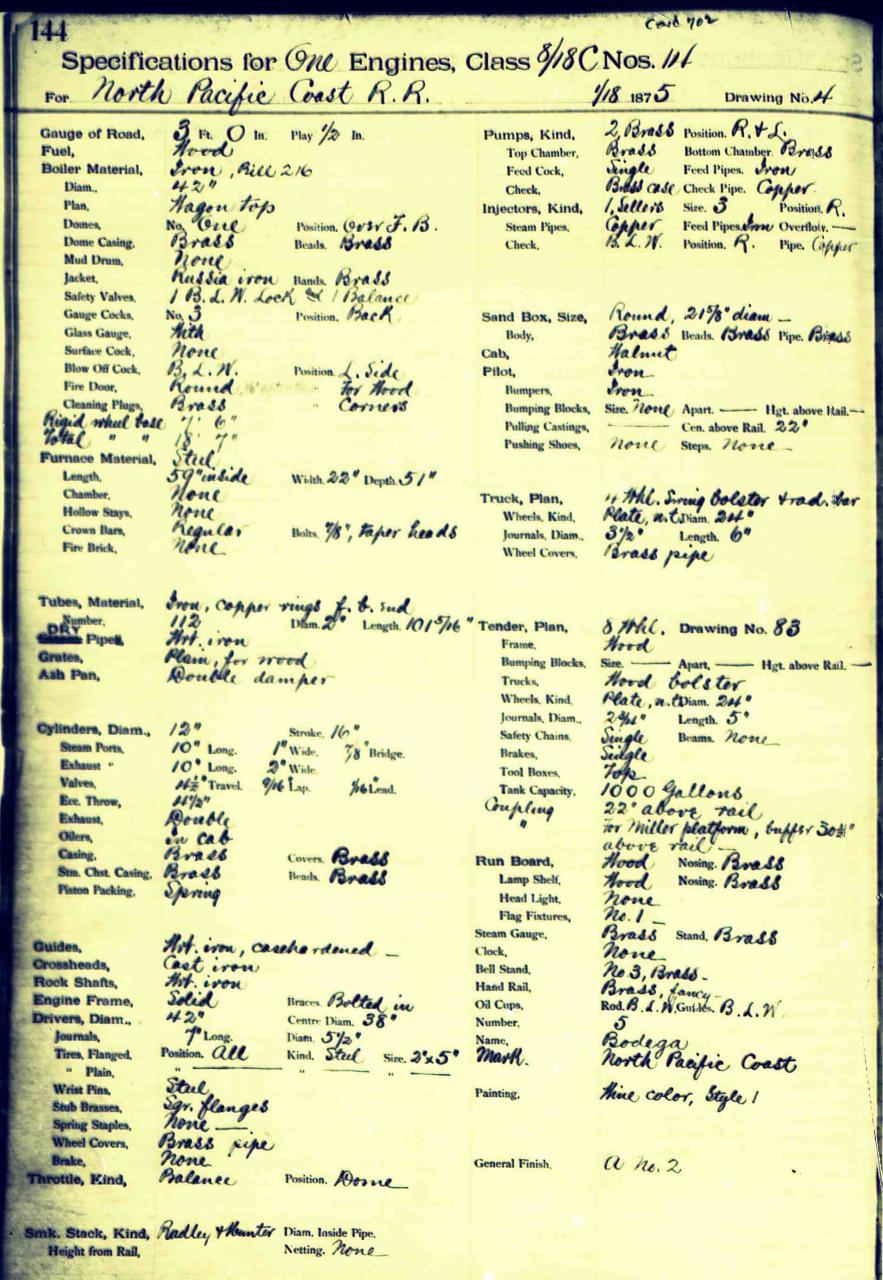 144
Card 702
Specifications for One Engines, Class 8/18C Nos. 111
For North Pacific Coast R. R. 1/18 1875 Drawing No. 4
Gauge of Road, 3 Ft. 0 In. Play 1/2 In.
Fuel, Wood
Boiler Material, Iron, Rill 216
Diam., 42"
Plan, Wagon top
Domes, No. One Position. Over F. B.
Dome Casing, Brass Beads. Brass
Mud Drum, None
Jacket, Russia iron Bands. Brass
Safety Valves, 1 B. L. W. Lock and 1 Balance
Gauge Cocks, No. 3 Position. Back
Glass Gauge, With
Surface Cock, None
Blow Off Cock, B. L. W. Position. L. Side
Fire Door, Round " For Wood
Cleaning Plugs, Brass " Corners
Rigid wheel base 7' 6"
Total " " 18' 7"
Furnace Material, Steel
Length, 59" inside Width. 22" Depth. 51"
Chamber, None
Hollow Stays, None
Crown Bars, Regular Bolts. 7/8", taper heads
Fire Brick, None
Tubes, Material, Iron, copper rings f. b. end
Number, 112 Diam. 2" Length. 101 5/16"
DRY Pipes, Wrt. iron
Grates, Plain, for wood
Ash Pan, Double damper
Cylinders, Diam., 12" Stroke. 16"
Steam Ports, 10" Long. 1" Wide. 7/8" Bridge.
Exhaust " 10" Long. 2" Wide
Valves, 4½" Travel. 9/16" Lap. 1/16" Lead.
Ecc. Throw, 4½"
Exhaust, Double
Oilers, in cab
Casing, Brass Covers. Brass
Stm. Chst. Casing, Brass Beads. Brass
Piston Packing, Spring
Guides, Wrt. iron, casehardened
Crossheads, Cast iron
Rock Shafts, Wrt. iron
Engine Frame, Solid Braces. Bolted in
Drivers, Diam., 42" Centre Diam. 38"
Journals, 7" Long. Diam. 5½"
Tires, Flanged, Position. All Kind. Steel Size. 2"x5"
" Plain, " — " — " —
Wrist Pins, Steel
Stub Brasses, Sqr. flanges
Spring Staples, None —
Wheel Covers, Brass pipe
Brake, None
Throttle, Kind, Balance Position. Dome
Smk. Stack, Kind, Radley & Hunter Diam. Inside Pipe.
Height from Rail, Netting. None
Pumps, Kind, 2, Brass Position. R. & L.
Top Chamber, Brass Bottom Chamber. Brass
Feed Cock, Single Feed Pipes. Iron
Check, Brass case Check Pipe. Copper
Injectors, Kind, 1, Sellers Size. 3 Position. R.
Steam Pipes, Copper Feed Pipes. Iron Overflow. —
Check, B. L. W. Position. R. Pipe. Copper
Sand Box, Size, Round, 21 5/8" diam —
Body, Brass Beads. Brass Pipe. Brass
Cab, Walnut
Pilot, Iron
Bumpers, Iron
Bumping Blocks, Size. None Apart. — Hgt. above Rail. —
Pulling Castings, — Cen. above Rail. 22"
Pushing Shoes, None Steps. None
Truck, Plan, 4 Whl. Swing bolster & rad. bar
Wheels, Kind, Plate, n.t. Diam. 24"
Journals, Diam., 3½" Length. 6"
Wheel Covers, Brass pipe
Tender, Plan, 8 Whl. Drawing No. 83
Frame, Wood
Bumping Blocks, Size. — Apart, — Hgt. above Rail. —
Trucks, Wood bolster
Wheels, Kind, Plate, n.t. Diam. 24"
Journals, Diam., Length. 5"
Safety Chains, Single Beams. None
Brakes, Single
Tool Boxes, Top
Tank Capacity, 1000 Gallons
Coupling 22" above rail
" For Miller platform, buffer
above rail —
Run Board, Wood Nosing. Brass
Lamp Shelf, Wood Nosing. Brass
Head Light, None
Flag Fixtures, No. 1 —
Steam Gauge, Brass Stand, Brass
Clock, None
Bell Stand, No. 3, Brass —
Hand Rail, Brass, fancy
Oil Cups, Rod. B. L. W. Guides. B. L. W
Number, 5
Name, Bodega
Mark. North Pacific Coast
Painting, Wine color, Style 1
General Finish, A No. 2